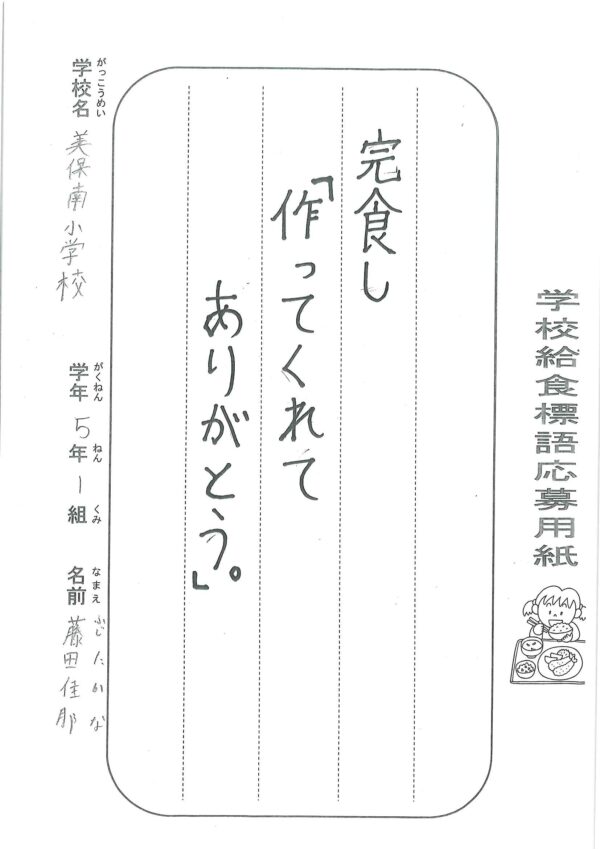 学校給食標語応募用紙
完食し
「作ってくれて
ありがとう。」
がっこうめい
学校名 美保南小学校
がくねん ねん くみ
学年 5年 1組
なまえ ふじたかな
名前 藤田佳那